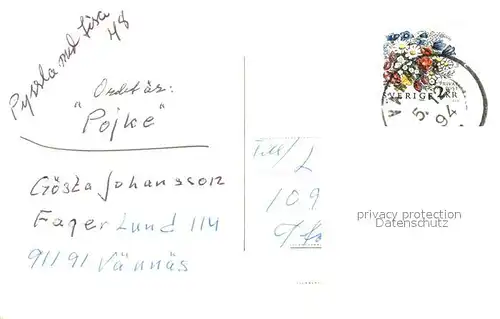 Pyssla med Lisa
48
Ordet är:
"Pojke"
Gösta Johansson
Fagerlund 114
911 91 Vännäs
Till/L
109
SVERIGE
KR
5. 12
94
privacy protection
Datenschutz